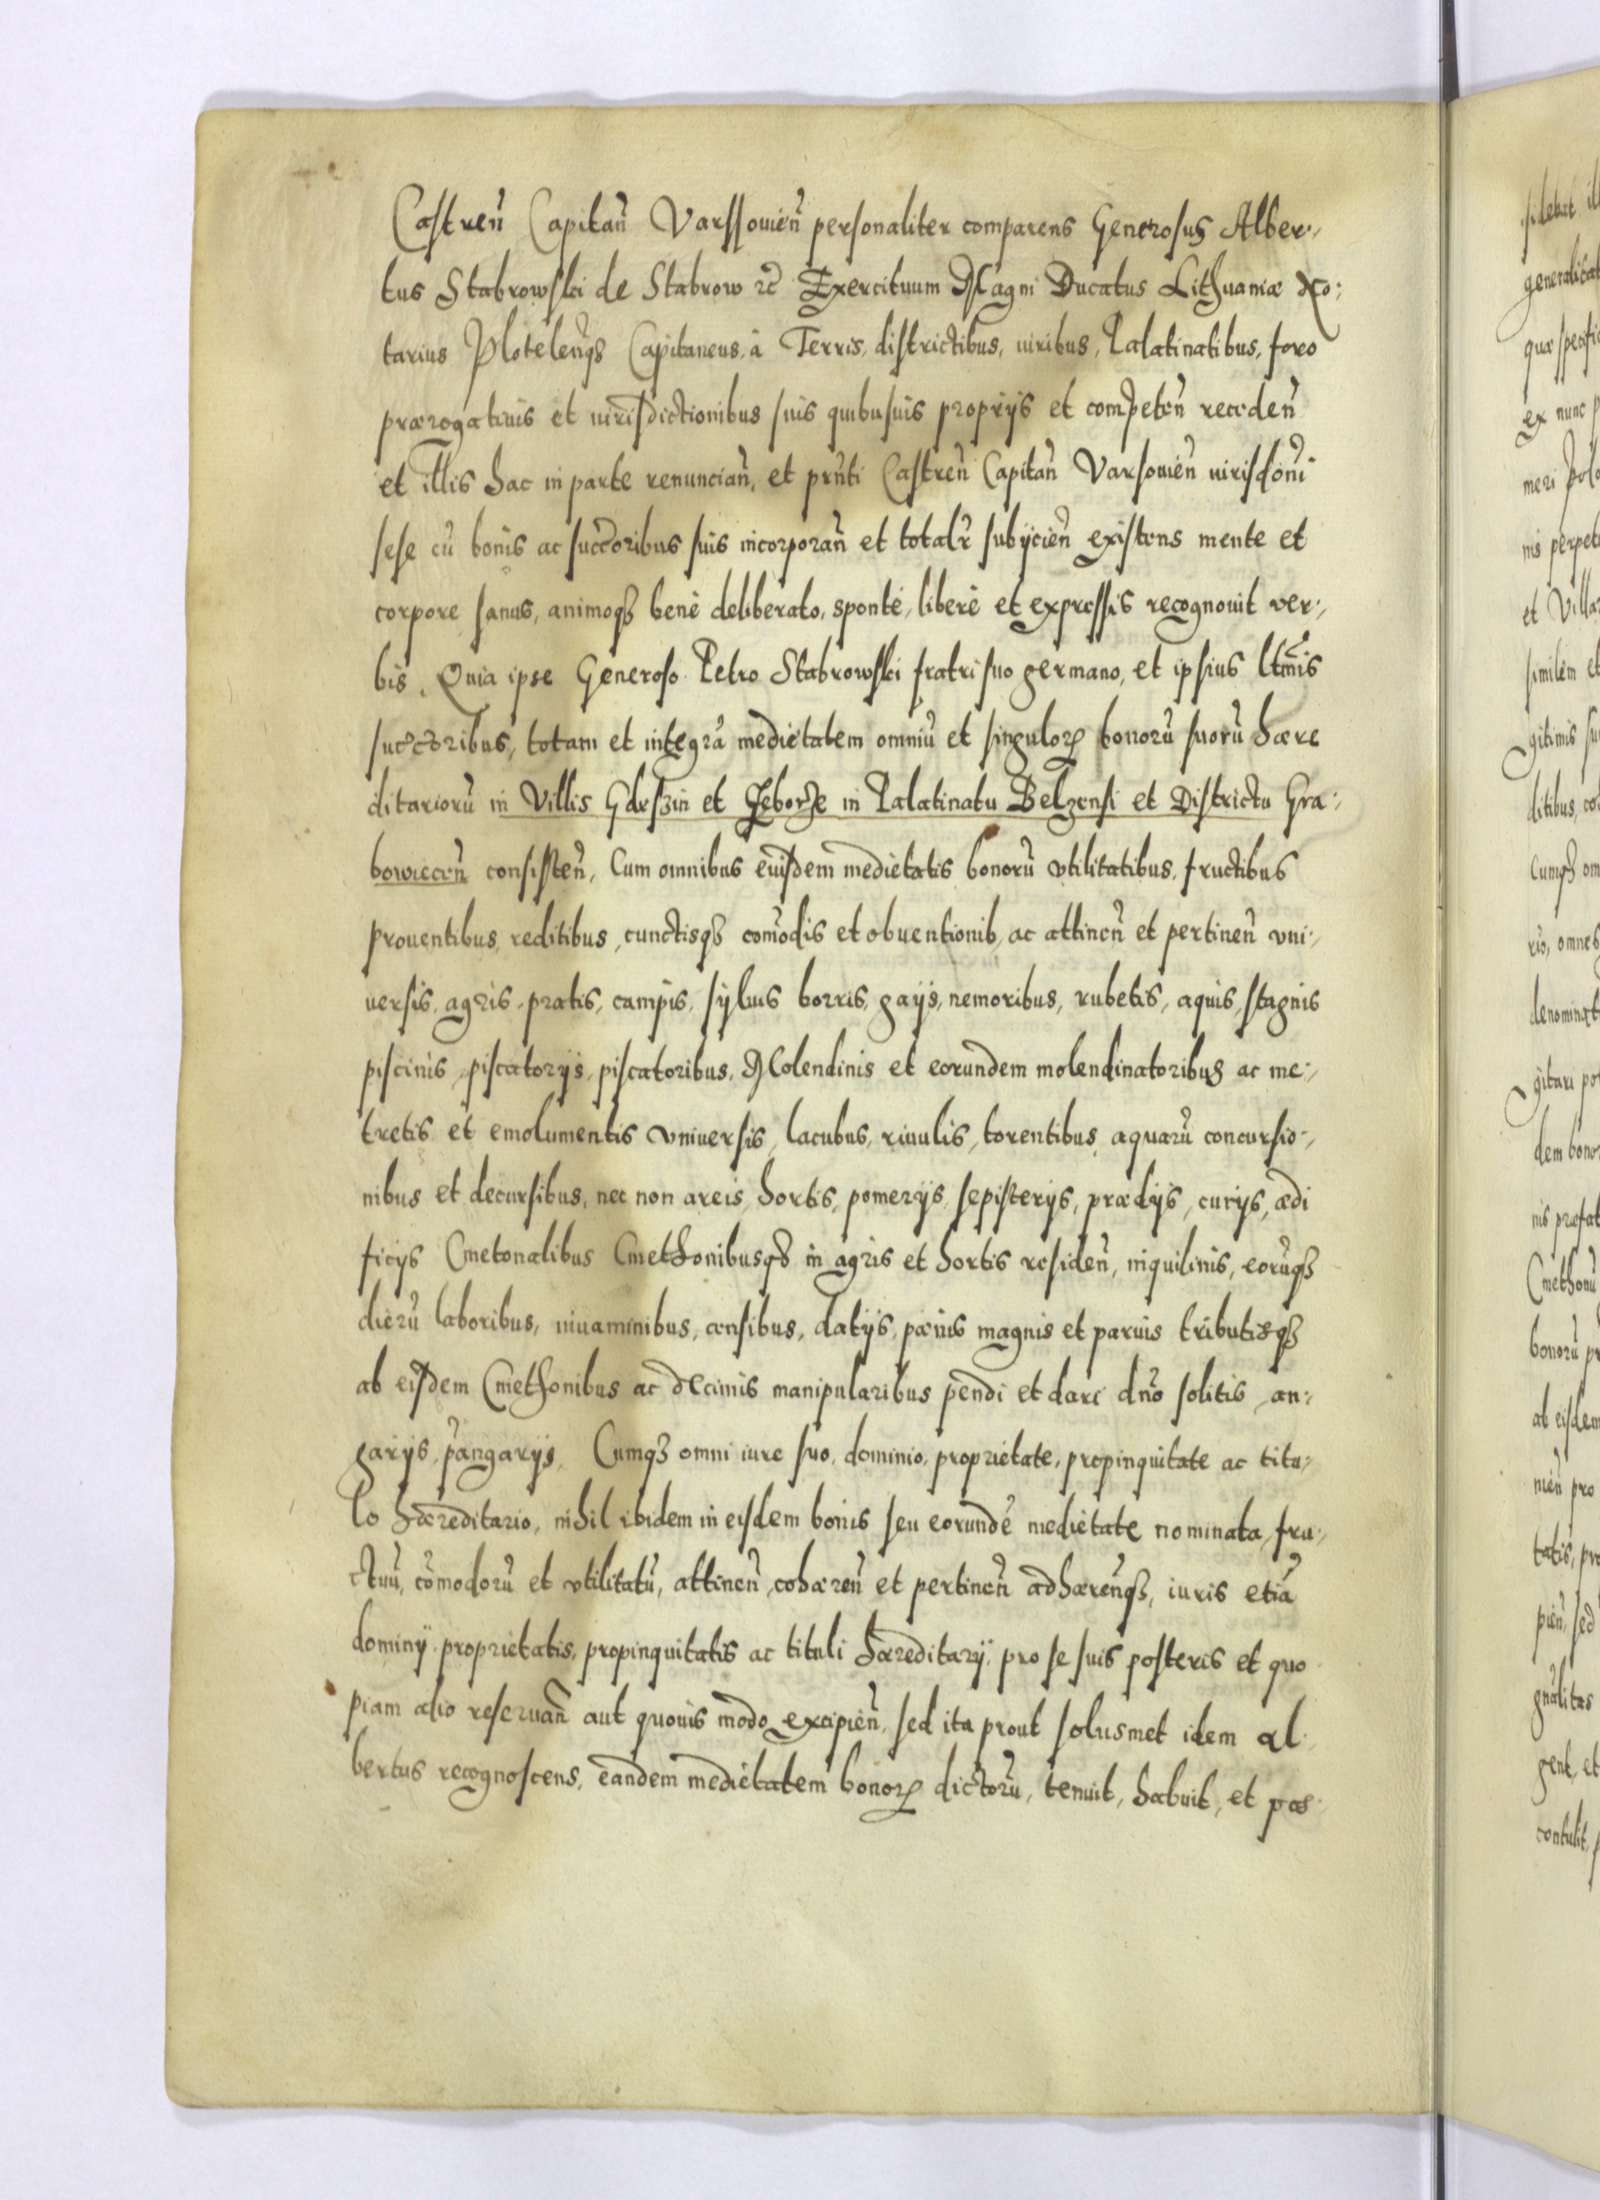 Castreñ Capitañ Varssovieñ personaliter comparens Generosus Alber-
tus Stabrowski de Stabrow &c Exercituum Magni Ducatus Lithuaniæ No-
tarius Ploteleñqз Capitaneus, à Terris, districtibus, iuribus, Palatinatibus, foro
prærogativis et iurisdictionibus suis quibusuis proprijs et competeñ recedeñ
et illis hac in parte renunciañ, et prñti Castreñ Capitañ Varsovieñ iurisdõni
sese cũ bonis ac succõribus suis incorporañ et totalr̃ subijcieñ existens mente et
corpore sanus, animoqз benè deliberato, spontè, liberè et expressis recognouit ver-
bis. Quia ipse Generoso Petro Stabrowski fratri suo germano, et ipsius ltm̃is
succõribus, totam et integrã medietatem omniũ et singuloꝝ bonorũ suorũ hære
ditariorũ in Villis Gdeszin et Zeborze in Palatinatu Belzensi et Districtu Gra-
bowieceñ consisteñ, Cum omnibus eiusdem medietatis bonorũ vtilitatibus, fructibus
prouentibus, reditibus, cunctisqз com̃odis et obuentionib, ac attineñ et pertineñ vni-
uersis, agris, pratis, campis, syluis borris, gaijs, nemoribus, rubetis, aquis, stagnis
piscinis, piscatorijs, piscatoribus, Molendinis et eorundem molendinatoribus ac me-
tretis et emolumentis vniuersis, lacubus, riuulis, torentibus, aquarũ concursio-
nibus et decursibus, nec non areis, hortis, pomerijs, sepisterijs, prædijs, curijs, ædi
ficijs Cmetonalibus Cmethonibusqз in agris et hortis resideñ, inquilinis, eorũqз
dierũ laboribus, iuuaminibus, censibus, datijs, pœnis magnis et paruis tributisqз
ab eisdem Cmethonibus ac decimis manipularibus pendi et dari dño solitis, an-
garijs, p̃angarijs, Cumqз omni iure suo, dominio, proprietate, propinquitate ac titu-
lo hæreditario, nihil ibidem in eisdem bonis seu eorundẽ medietate nominata, fru-
ctuũ, com̃odorũ et vtilitatũ, attineñ, cohæreñ et pertineñ adhæreñqз, iuris etiã
dominij proprietatis, propinquitatis ac tituli hæreditarij, pro se suis posteris et quo
piam alio reseruañ aut quouis modo excipieñ, sed ita prout solusmet idem Al-
bertus recognoscens, eandem medietatem bonoꝝ dictorũ, tenuit, habuit, et pos-